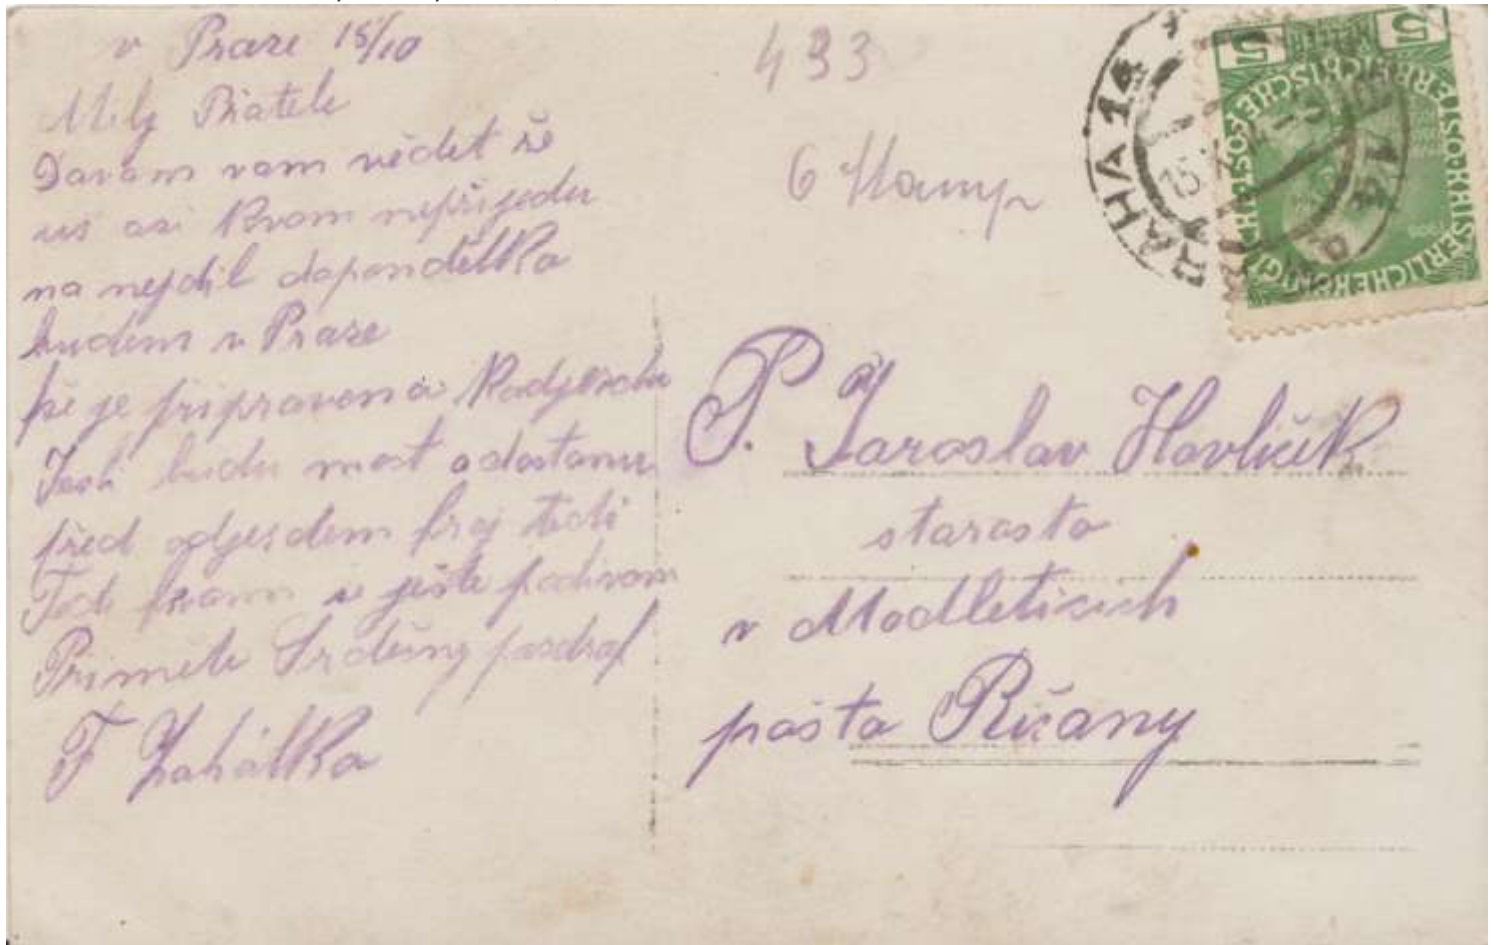 v Praze 15/10
Milý Přátele
Davam vam vědet že
us asi Kvam nepřijedu
na nejdil dopondělka
budem v Praze
že je připravena
Jesli budu moct a dostanu
před odjesdem
Tedi kvam se ješte podivam
Primete Srdečny pozdraf
F Zahálka
433
6 Kamp
PRAHA 14
15
5 HELLER 5
KAISERLICHE KÖNIGLICHE ÖSTERREICHISCHE POST
P. Jaroslav Havlíček
starosta
v Modleticich
pošta Řičany